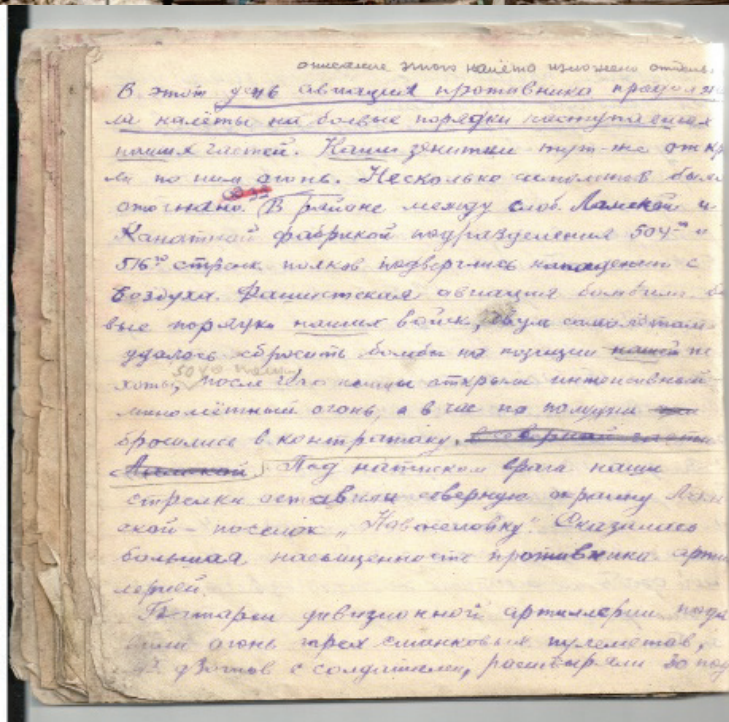 описание этого налёта изложено отдель
В этот день авиация противника продолжа
ла налёты на боевые порядки наступающих
наших частей. Наши зенитки тут-же откры
ли по ним огонь. Несколько самолётов было
отогнано. В районе между слоб. Ламской и
Канатной фабрикой подразделения 504го и
516го стрелк. полков подверглись нападению с
воздуха. Фашистская авиация бомбила бо
вые порядки наших войск, двум самолётам
удалось сбросить бомбы на позиции нашей пе
504го полка
хоты, после чего немцы открыли интенсивный
миномётный огонь, а в час по полудни
бросились в контратаку, в северной части
Ламской. Под натиском врага наши
стрелки оставили северную окраину Лам
ской - поселок „Новоселовку". Сказалась
большая насыщенность противника арти
лерией.
Батареи дивизионной артиллерии пода
вили огонь трех станковых пулеметов,
дзотов с солдатами, рассеяли 30 под